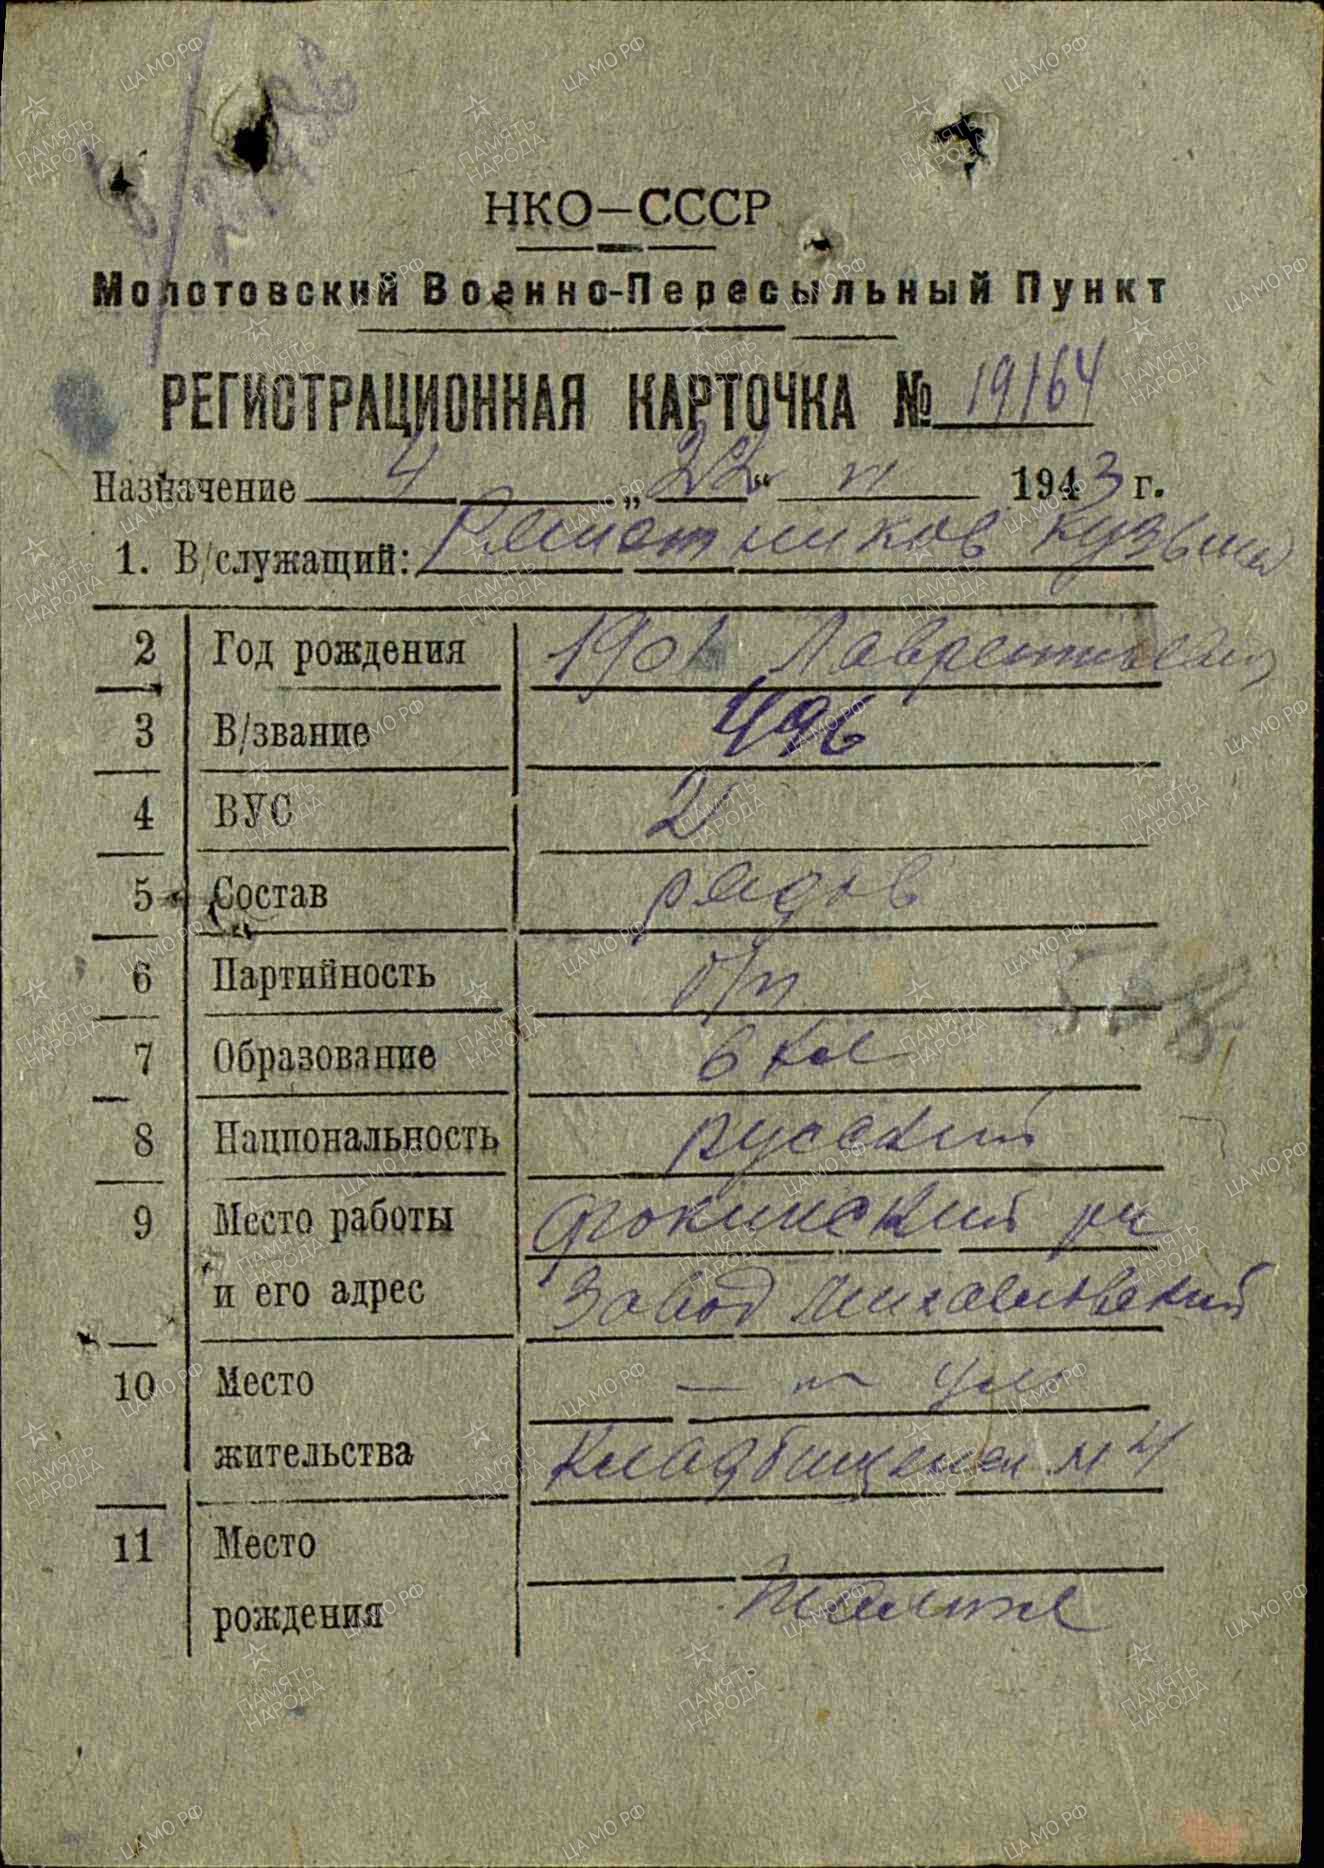 НКО—СССР
Молотовский Военно-Пересыльный Пункт
РЕГИСТРАЦИОННАЯ КАРТОЧКА № 19164
Назначение 4 „22“ 1943 г.
1. В/служащий: Решетников Кузьма
2 Год рождения 1901 Лаврентьевич
3 В/звание 496
4 ВУС 21
5 Состав рядов
6 Партийность б/п
7 Образование 6 кл
8 Национальность русский
9 Место работы Фокинский рн
и его адрес Завод Михайловский
10 Место — " — ул
жительства Кладбищенская 4
11 Место
рождения Тамже
ЦАМО.РФ
ПАМЯТЬ НАРОДА